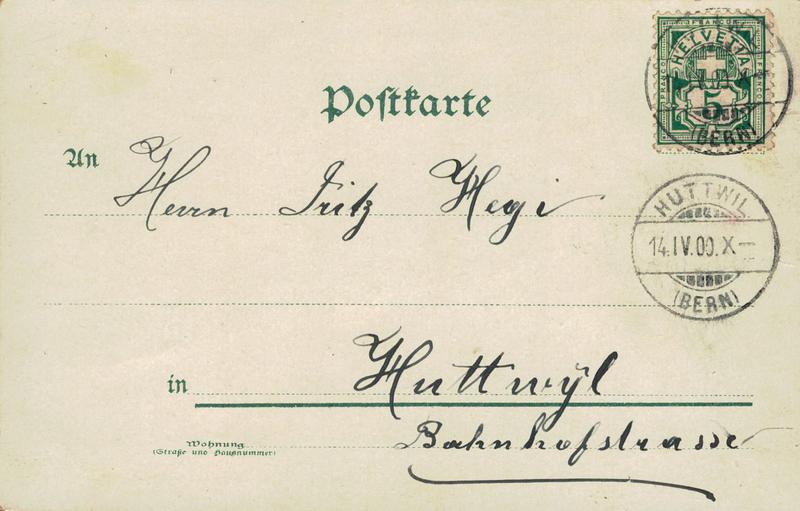 FRANCO
FRANCO FRANCO
HELVETIA
5
(BERN)
Postkarte
An Herrn Fritz Hegi
HUTTWIL
14.IV.00.X—
(BERN)
in Huttwÿl
Wohnung
(Straße und Hausnummer)
Bahnhofstrasse